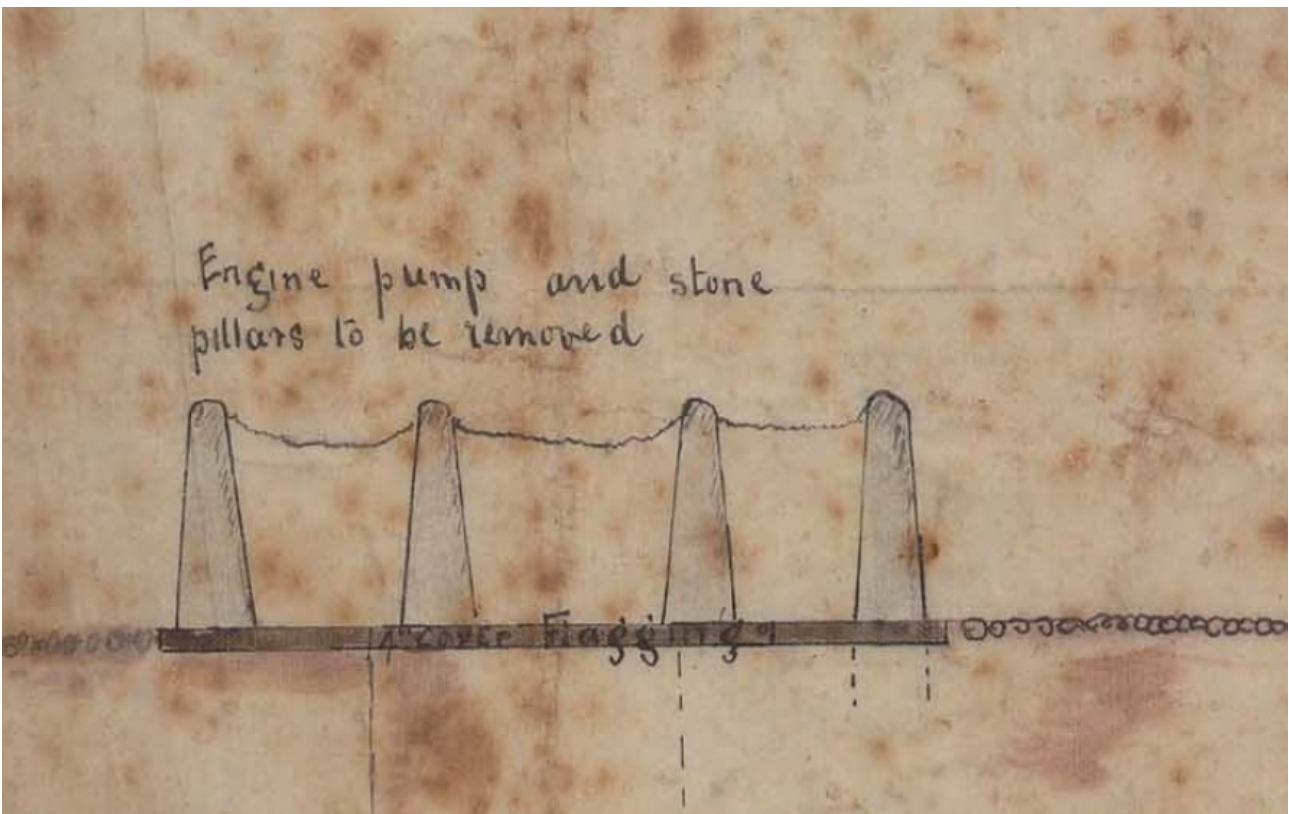 Engine pump and stone
pillars to be removed
Flagging